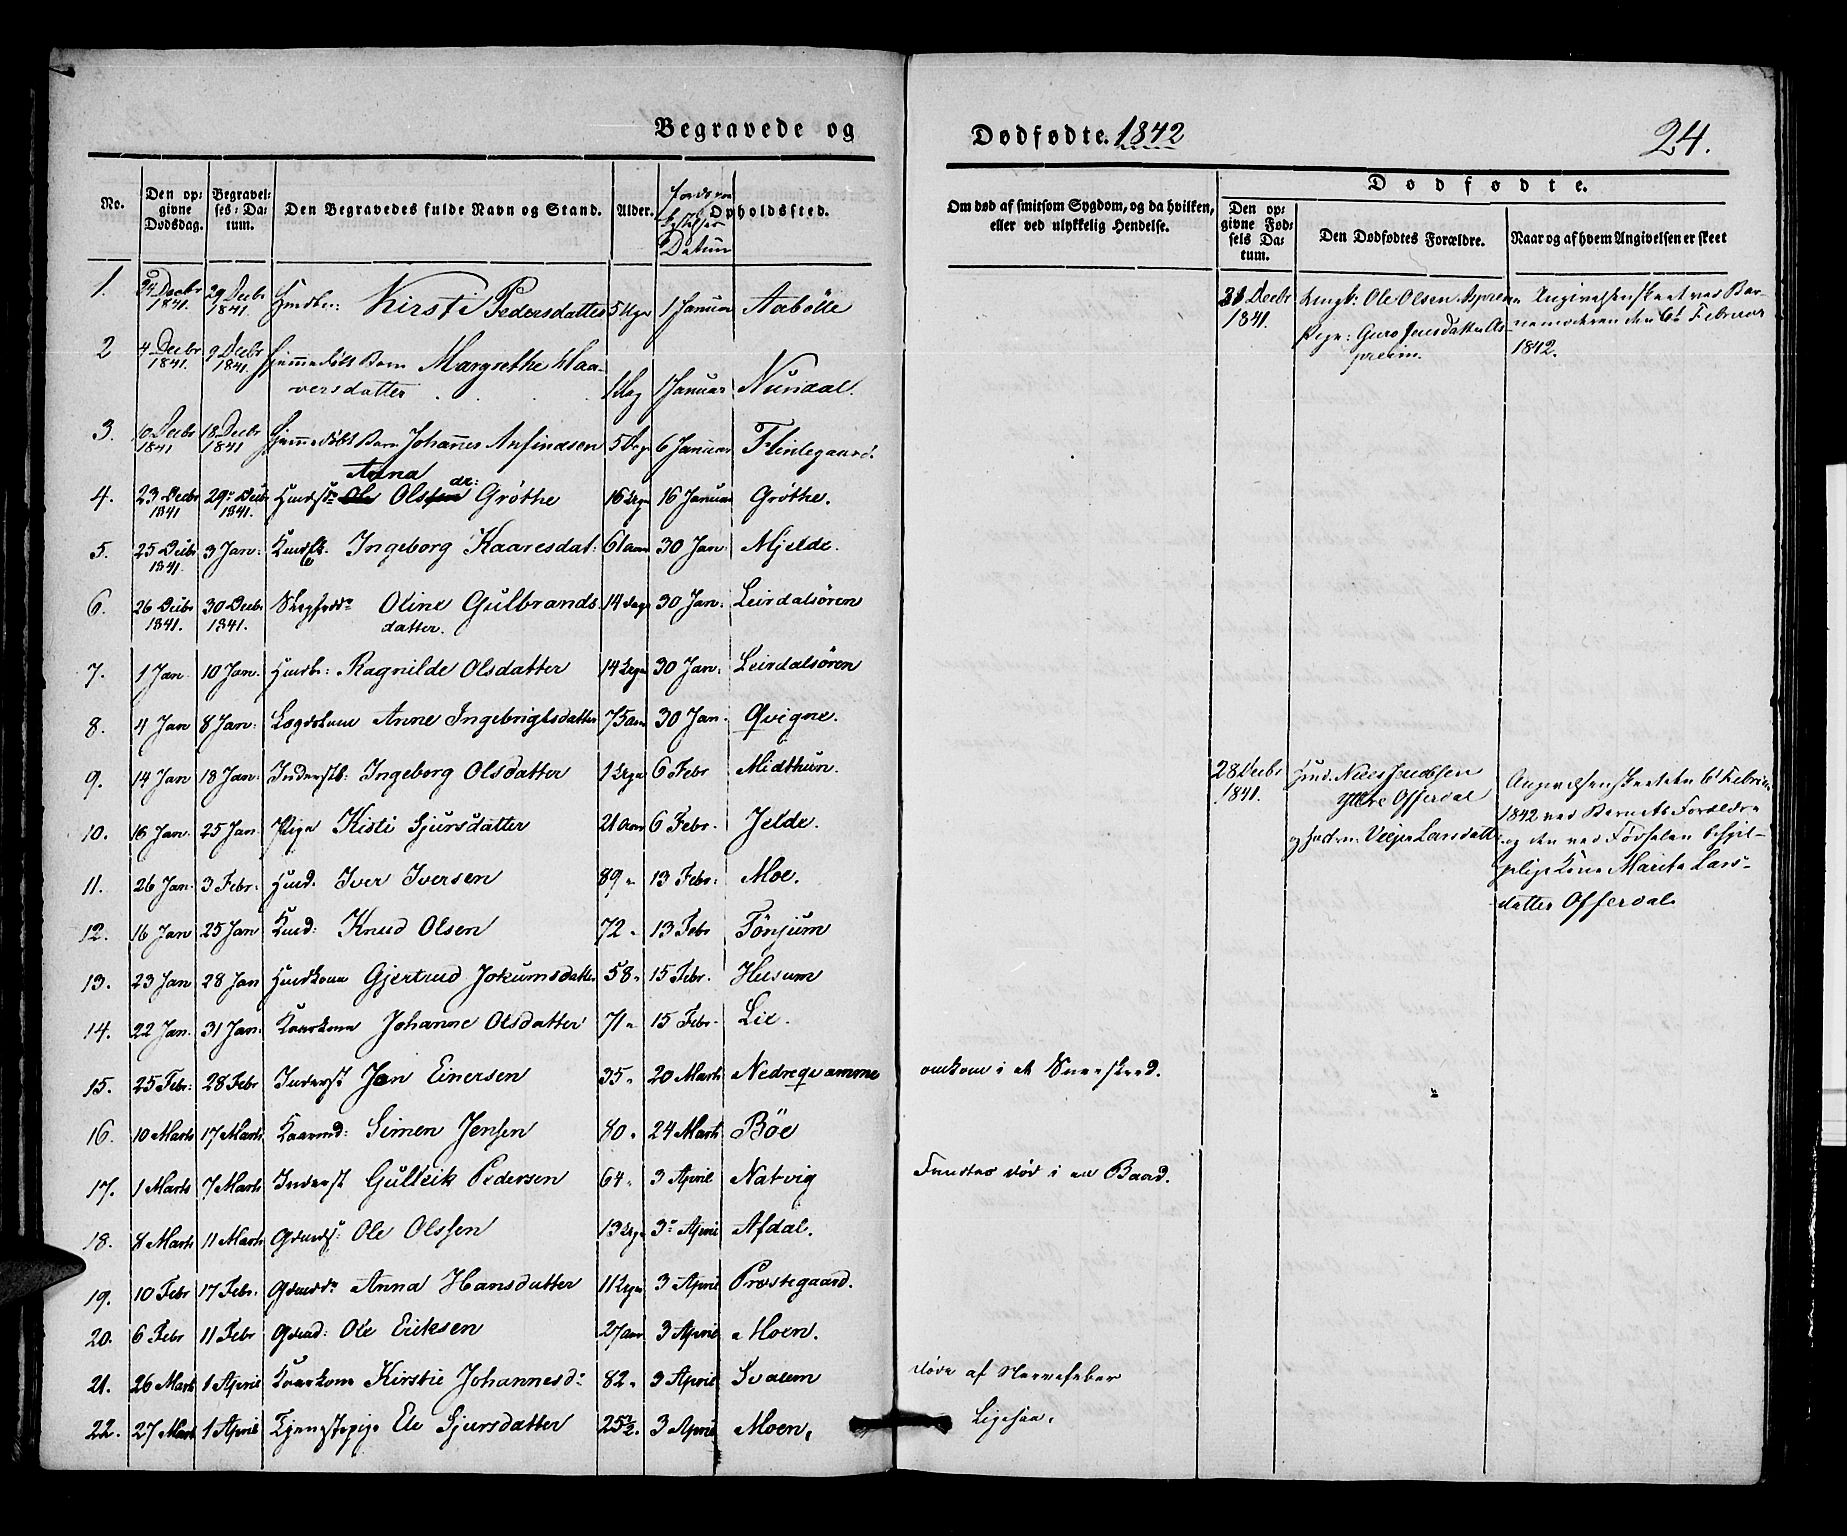 Begravede og
Dødfødte. 1842
24.
No.
Den opgivne Dødsdag.
Begravelses-Datum.
Den Begravedes fulde Navn og Stand.
Alder.
Datum
Opholdssted.
Om død af smitsom Sygdom, og da hvilken, eller ved ulykkelig Hendelse.
Dødfødte.
Den opgivne Fødsels Datum.
Den Dødfødtes Forældre.
Naar og af hvem Angivelsen er skeet
1. 24 Decbr 1841. 29 Decbr 1841. Kirsti Pedersdatter 1 Januar Aabölle
2 4 Decbr 1841. 9 Decbr 1841. Hjemmedöbt Barn Margrethe Haaversdatter 1 Dag 1 Januar Nundal.
3. 10 Decbr 1841 18 Decbr 1841 Hjemmedöbt Barn Johannes Anfindsen 5 Dage 6 Januar Flintegaard.
4. 23 Decbr 1841 29 Decbr 1841. Anna Ols dr: Gröthe 16 Januar Gröthe.
5. 25 Decbr 1841. 3 Jan: Ingeborg Kaaresdat: 61 aar 30 Jan: Mjelde.
6. 26 Decbr 1841. 30 Decbr 1841. Oline Gulbrandsdatter. 14 Dage 30 Jan: Leirdalsören
7. 1 Jan 10 Jan. Ragnilde Olsdatter 30 Jan: Leirdalsören
8. 4 Jan 8 Jan: Lægdskone Anne Ingebrigtsdatter 75 aar 30 Jan. Qvigne.
9. 14 Jan 18 Jan: Ingeborg Olsdatter 6 Febr Midthun.
10. 16 Jan. 25 Jan. Pige Kisti Sjursdatter 21 Aar 6 Febr. Jelde.
11. 26 Jan. 3 Febr. Iver Iversen 89 " 13 Febr: Moe.
12. 16 Jan 25 Jan Knud Olsen 72 " 13 Febr Tönjum
13. 23 Jan 28 Jan Gjertrud Jokumsdatter 58 " 15 Febr. Husum
14. 22 Jan. 31 Jan. Kaarkone Johanne Olsdatter 71 " 15 Febr. Lie.
15. 25 Febr: 28 Febr Inderst Jon Einersen 35 " 20 Marts Nedreqvamme omkom i et Sneeskred.
16. 10 Marts 17 Marts Kaarmd: Simen Jensen 80 " 24 Marts Böe
17. 1 Marts 7 Marts Inderst Gulleik Pedersen 64 " 3 April Natvig Fundtes död i en Baad.
18. 8 Marts 11 Marts Ole Olssen 3 April Afdal.
19. 10 Febr 17 Febr. Anna Hansdatter 3 April Præstegaard.
20. 6 Febr 11 Febr Ole Eriksen 27 aar 3 April Moen.
21. 26 Marts 1 April Kaarkone Kirstie Johannesd: 82 " 3 April Svalem döde af Nervefeber
22. 27 Marts 1 April Tjenestepige Ele Sjursdatter 25½ " 3 April Moen. Ligesaa.
31 Decbr 1841. Ungk: Ole Olsen
Pige: Guro Jensdatter
Angivelsen skeet ved Barnemoderen den 6te Februar 1842.
28 Decbr 1841. Niels Jacobsen
Yttre Offerdal
Larsdatter
Angivelsen skeete den 6te Februar
1842 ved Barnets Forældre
og den ved Fødselen behjelpelige Kone Marita Larsdatter Offerdal.